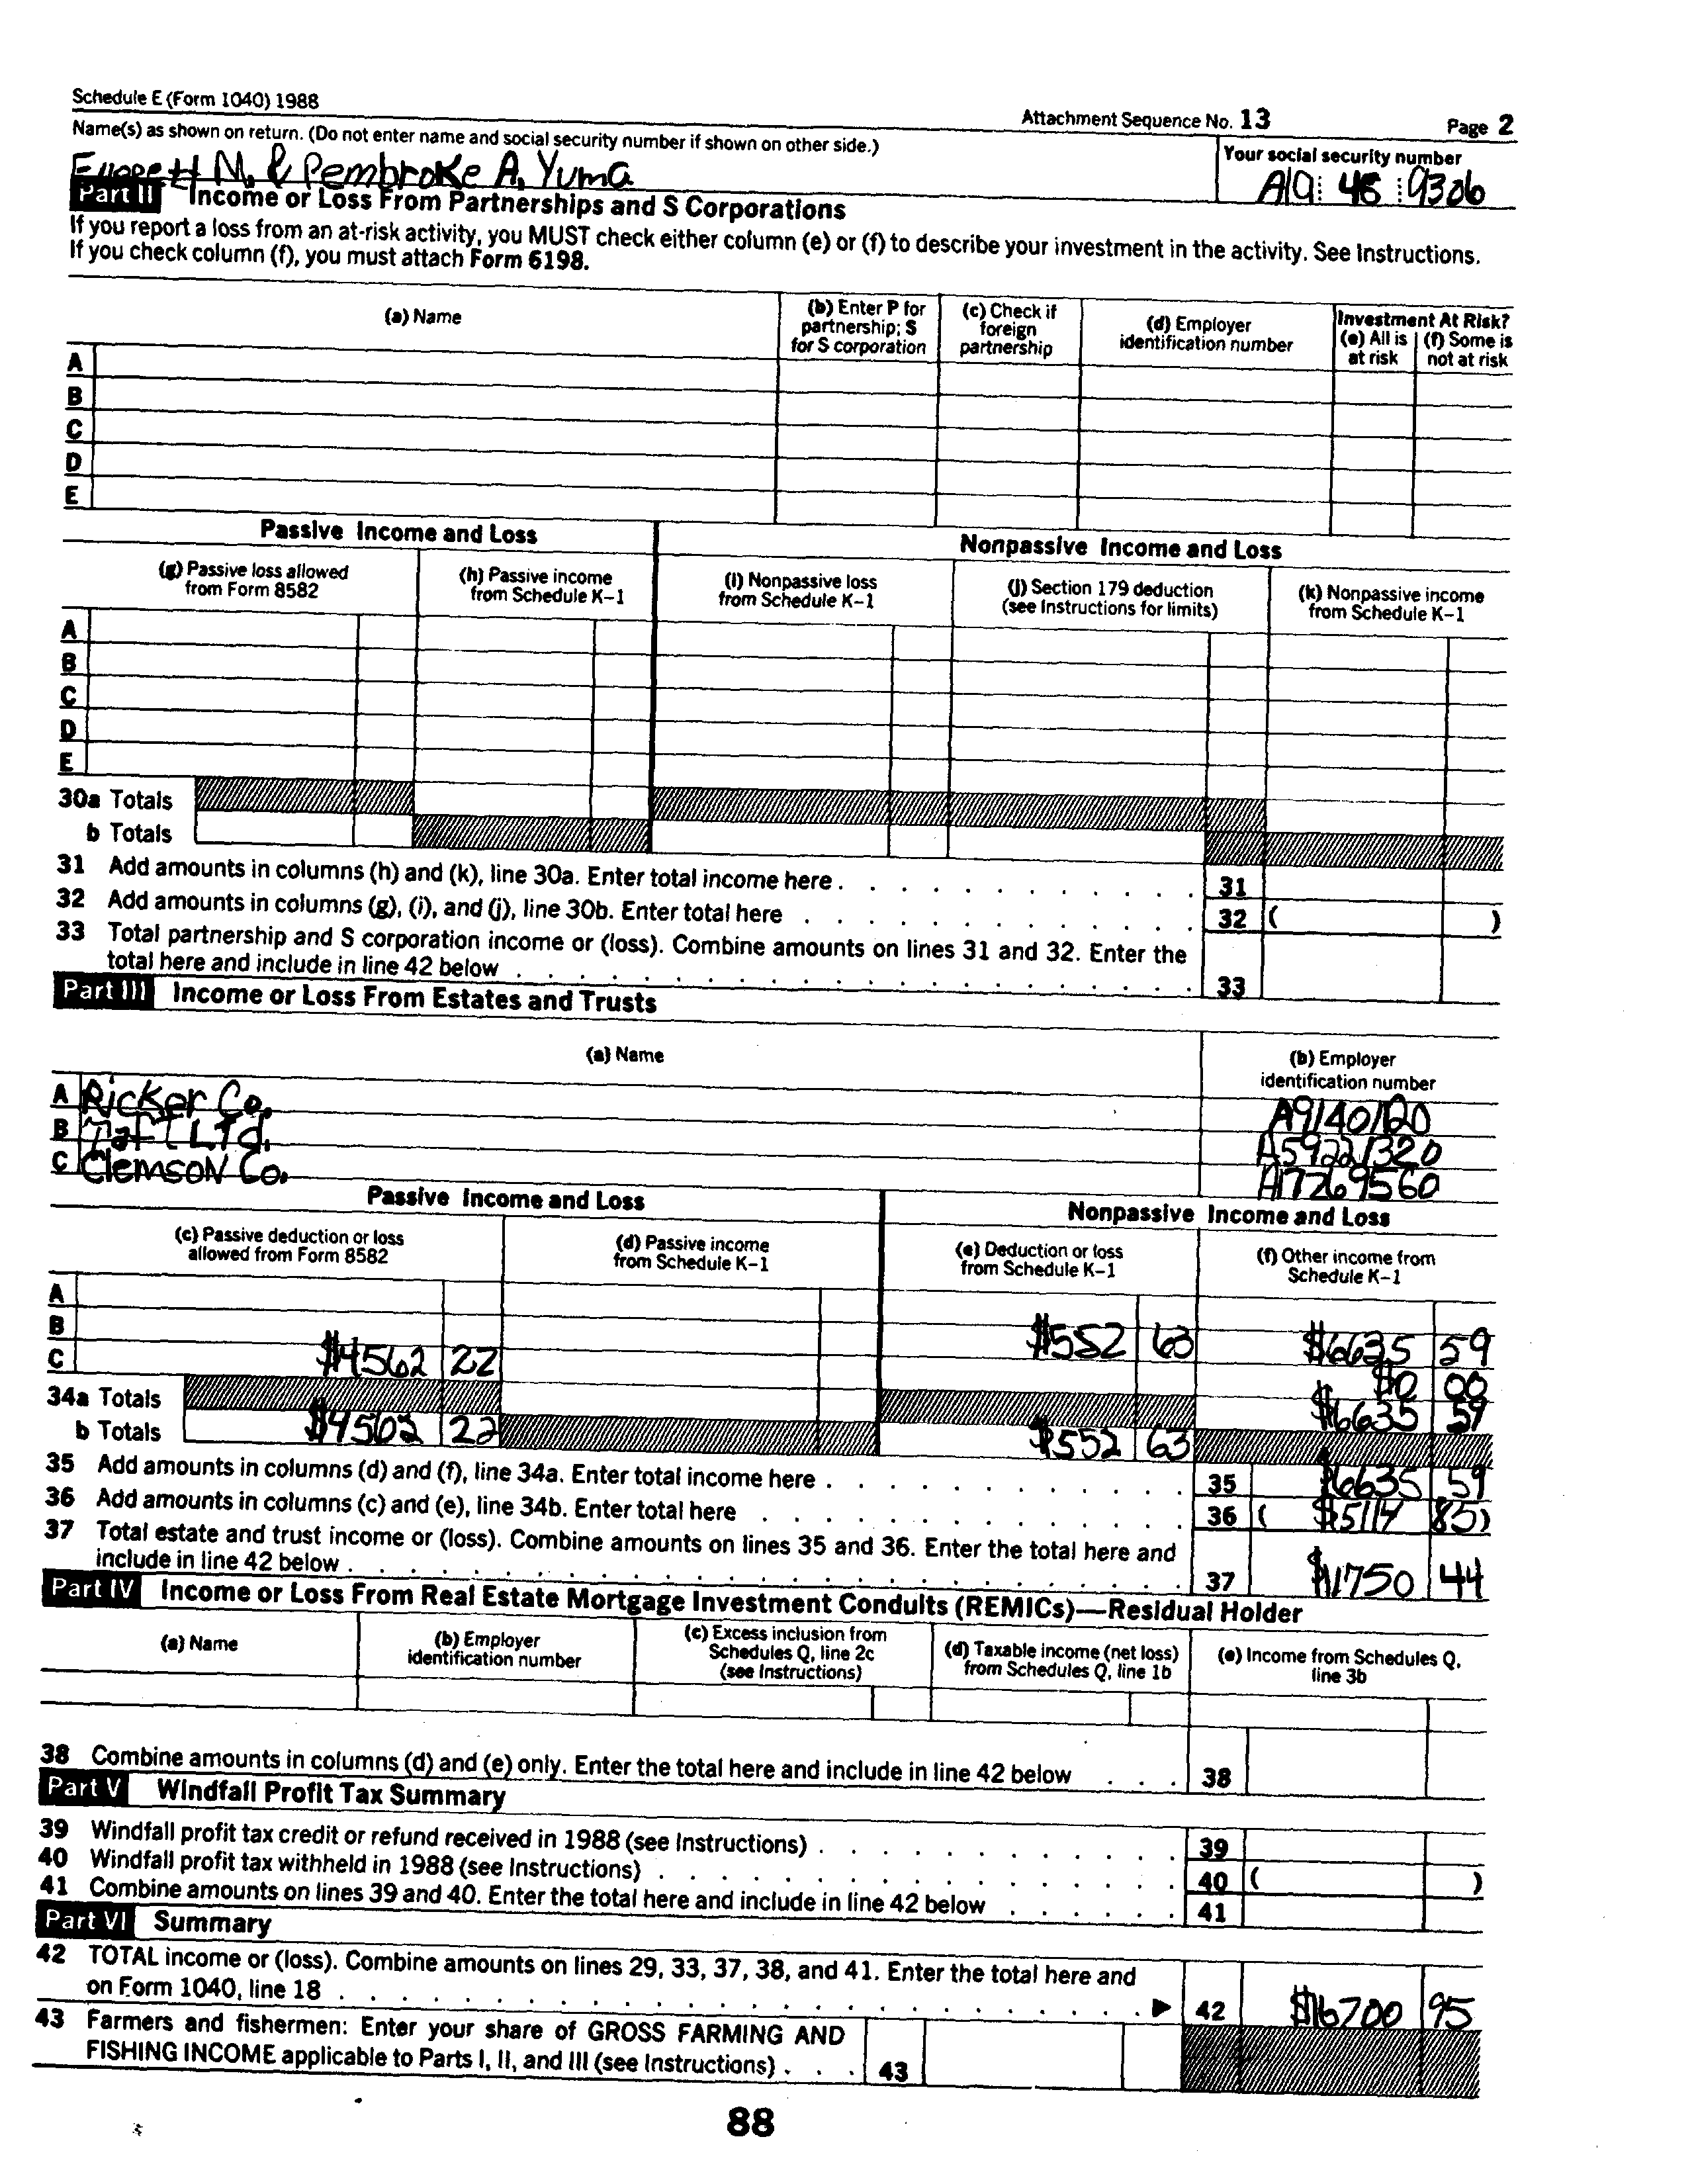 Schedule E (Form 1040) 1988
Attachment Sequence No. 13
Page 2
Name(s) as shown on return. (Do not enter name and social security number if shown on other side.)
Your social security number
M. & Pembroke A. Yuma
A19 48 9306
Part II Income or Loss From Partnerships and S Corporations
If you report a loss from an at-risk activity, you MUST check either column (e) or (f) to describe your investment in the activity. See Instructions.
If you check column (f), you must attach Form 6198.
(a) Name
(b) Enter P for
partnership; S
for S corporation
(c) Check if
foreign
partnership
(d) Employer
identification number
Investment At Risk?
(e) All is
at risk
(f) Some is
not at risk
A
B
C
D
E
Passive Income and Loss
Nonpassive Income and Loss
(g) Passive loss allowed
from Form 8582
(h) Passive income
from Schedule K–1
(i) Nonpassive loss
from Schedule K–1
(j) Section 179 deduction
(see Instructions for limits)
(k) Nonpassive income
from Schedule K–1
A
B
C
D
E
30a Totals
b Totals
31 Add amounts in columns (h) and (k), line 30a. Enter total income here . 31
32 Add amounts in columns (g), (i), and (j), line 30b. Enter total here . 32 ( )
33 Total partnership and S corporation income or (loss). Combine amounts on lines 31 and 32. Enter the
total here and include in line 42 below . 33
Part III Income or Loss From Estates and Trusts
(a) Name
(b) Employer
identification number
A Ricker Co. A9140120
B Taft LTd. A59221320
C Clemson Co. A17269560
Passive Income and Loss
Nonpassive Income and Loss
(c) Passive deduction or loss
allowed from Form 8582
(d) Passive income
from Schedule K–1
(e) Deduction or loss
from Schedule K–1
(f) Other income from
Schedule K–1
A
B $552 63 $6635 59
C $4562 22 $0 00
34a Totals $6635 59
b Totals $4562 22 $552 63
35 Add amounts in columns (d) and (f), line 34a. Enter total income here . 35 $6635 59
36 Add amounts in columns (c) and (e), line 34b. Enter total here . 36 ( $5114 85)
37 Total estate and trust income or (loss). Combine amounts on lines 35 and 36. Enter the total here and
include in line 42 below . 37 $11750 44
Part IV Income or Loss From Real Estate Mortgage Investment Conduits (REMICs)—Residual Holder
(a) Name
(b) Employer
identification number
(c) Excess inclusion from
Schedules Q, line 2c
(see Instructions)
(d) Taxable income (net loss)
from Schedules Q, line 1b
(e) Income from Schedules Q,
line 3b
38 Combine amounts in columns (d) and (e) only. Enter the total here and include in line 42 below . . . 38
Part V Windfall Profit Tax Summary
39 Windfall profit tax credit or refund received in 1988 (see Instructions) . 39
40 Windfall profit tax withheld in 1988 (see Instructions) . 40 ( )
41 Combine amounts on lines 39 and 40. Enter the total here and include in line 42 below . 41
Part VI Summary
42 TOTAL income or (loss). Combine amounts on lines 29, 33, 37, 38, and 41. Enter the total here and
on Form 1040, line 18 . ▶ 42 $16700 95
43 Farmers and fishermen: Enter your share of GROSS FARMING AND
FISHING INCOME applicable to Parts I, II, and III (see Instructions) . . . 43
88